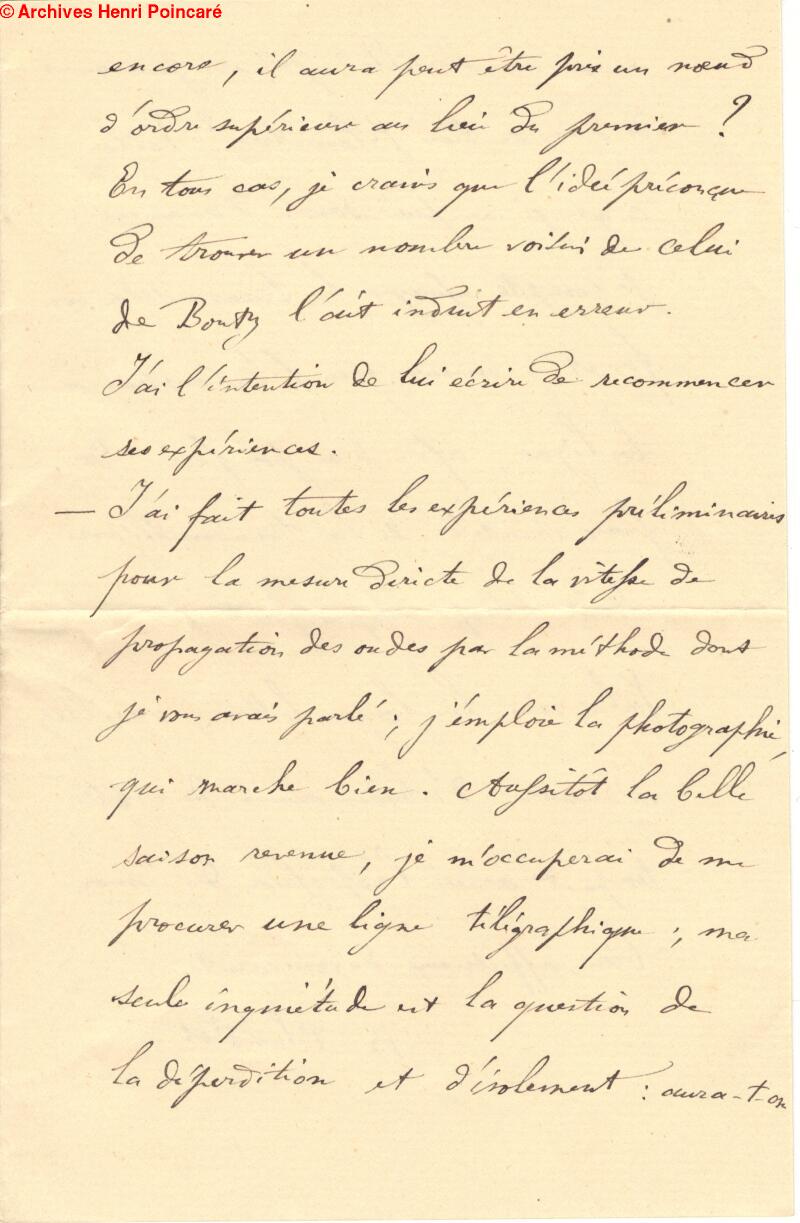 © Archives Henri Poincaré
encore, il aura peut être pris un nœud
d'ordre supérieur au lieu du premier ?
En tous cas, je crains que l'idée préconçue
de trouver un nombre voisin de celui
de Bouty l'ait induit en erreur.
J'ai l'intention de lui écrire de recommencer
ses expériences.
— J'ai fait toutes les expériences préliminaires
pour la mesure directe de la vitesse de
propagation des ondes par la méthode dont
je vous avais parlé ; j'emploie la photographie,
qui marche bien. Aussitôt la belle
saison revenue, je m'occuperai de me
procurer une ligne télégraphique ; ma
seule inquiétude est la question de
la déperdition et d'isolement : aura-t-on